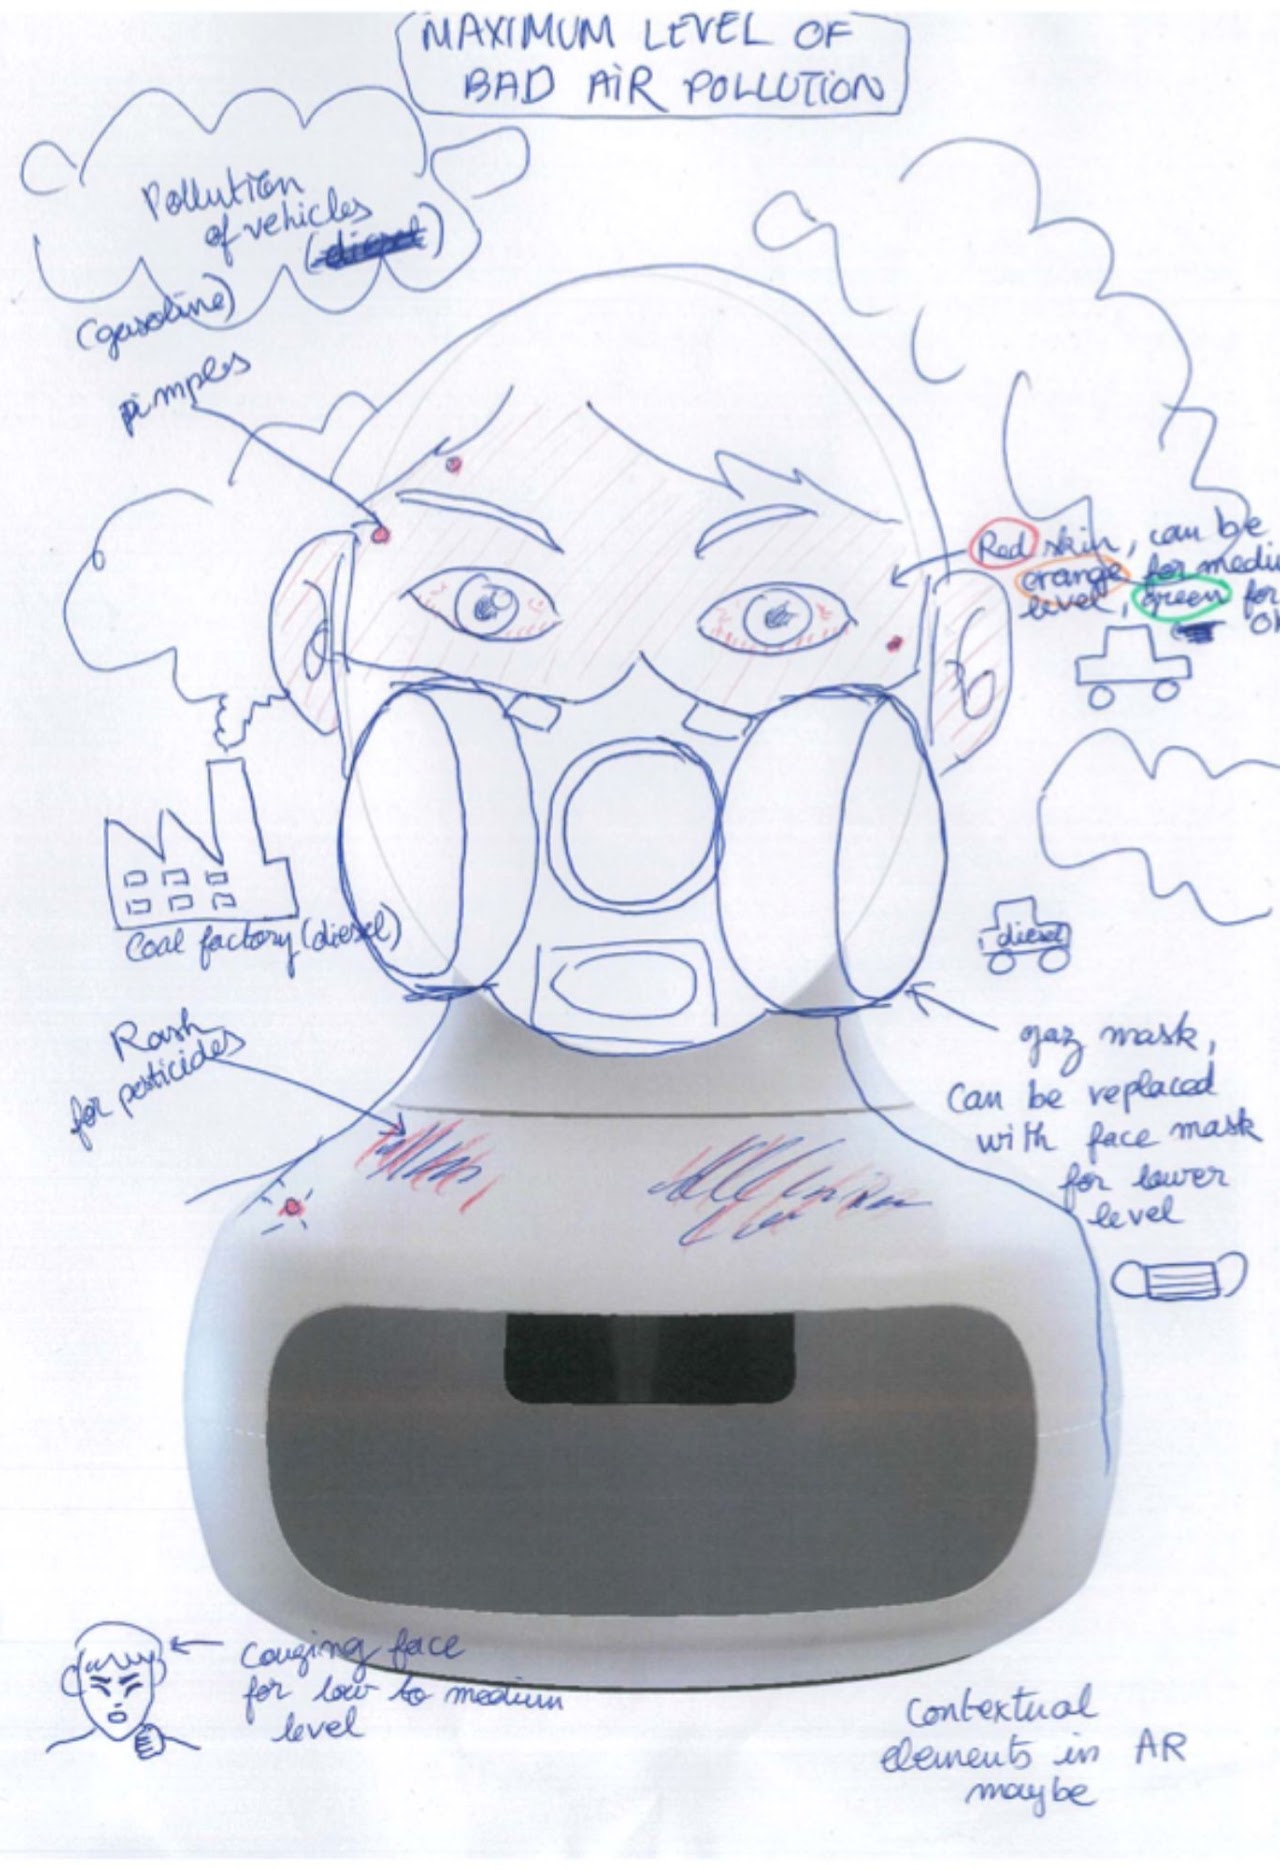 MAXIMUM LEVEL OF
BAD AIR POLLUTION
Pollution
of vehicles
(diesel)
(gasoline)
pimples
Red skin, can be
orange for mediu
level, green for
Ok
diesel
Coal factory (diesel)
Rash
for pesticides
gaz mask,
can be replaced
with face mask
for lower
level
Couging face
for low to medium
level
Contextual
elements in AR
maybe